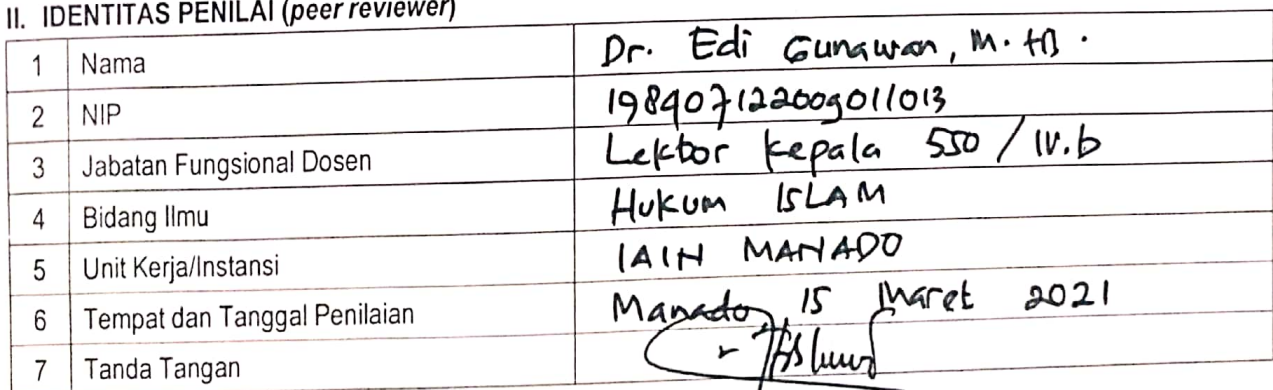 II. IDENTITAS PENILAI (peer reviewer)
1 Nama Dr. Edi Gunawan, M.HI.
2 NIP 198407122009011013
3 Jabatan Fungsional Dosen Lektor Kepala 550 / IV.b
4 Bidang Ilmu Hukum ISLAM
5 Unit Kerja/Instansi IAIN MANADO
6 Tempat dan Tanggal Penilaian Manado, 15 Maret 2021
7 Tanda Tangan